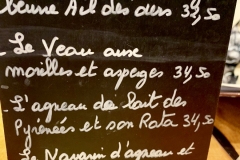 beurre Ail des ours 32,50
- Le Veau aux
morilles et asperges 34,50
- L'agneau de lait des
Pyrénées et son Rata 34,50
- Le Navarin d'agneau et